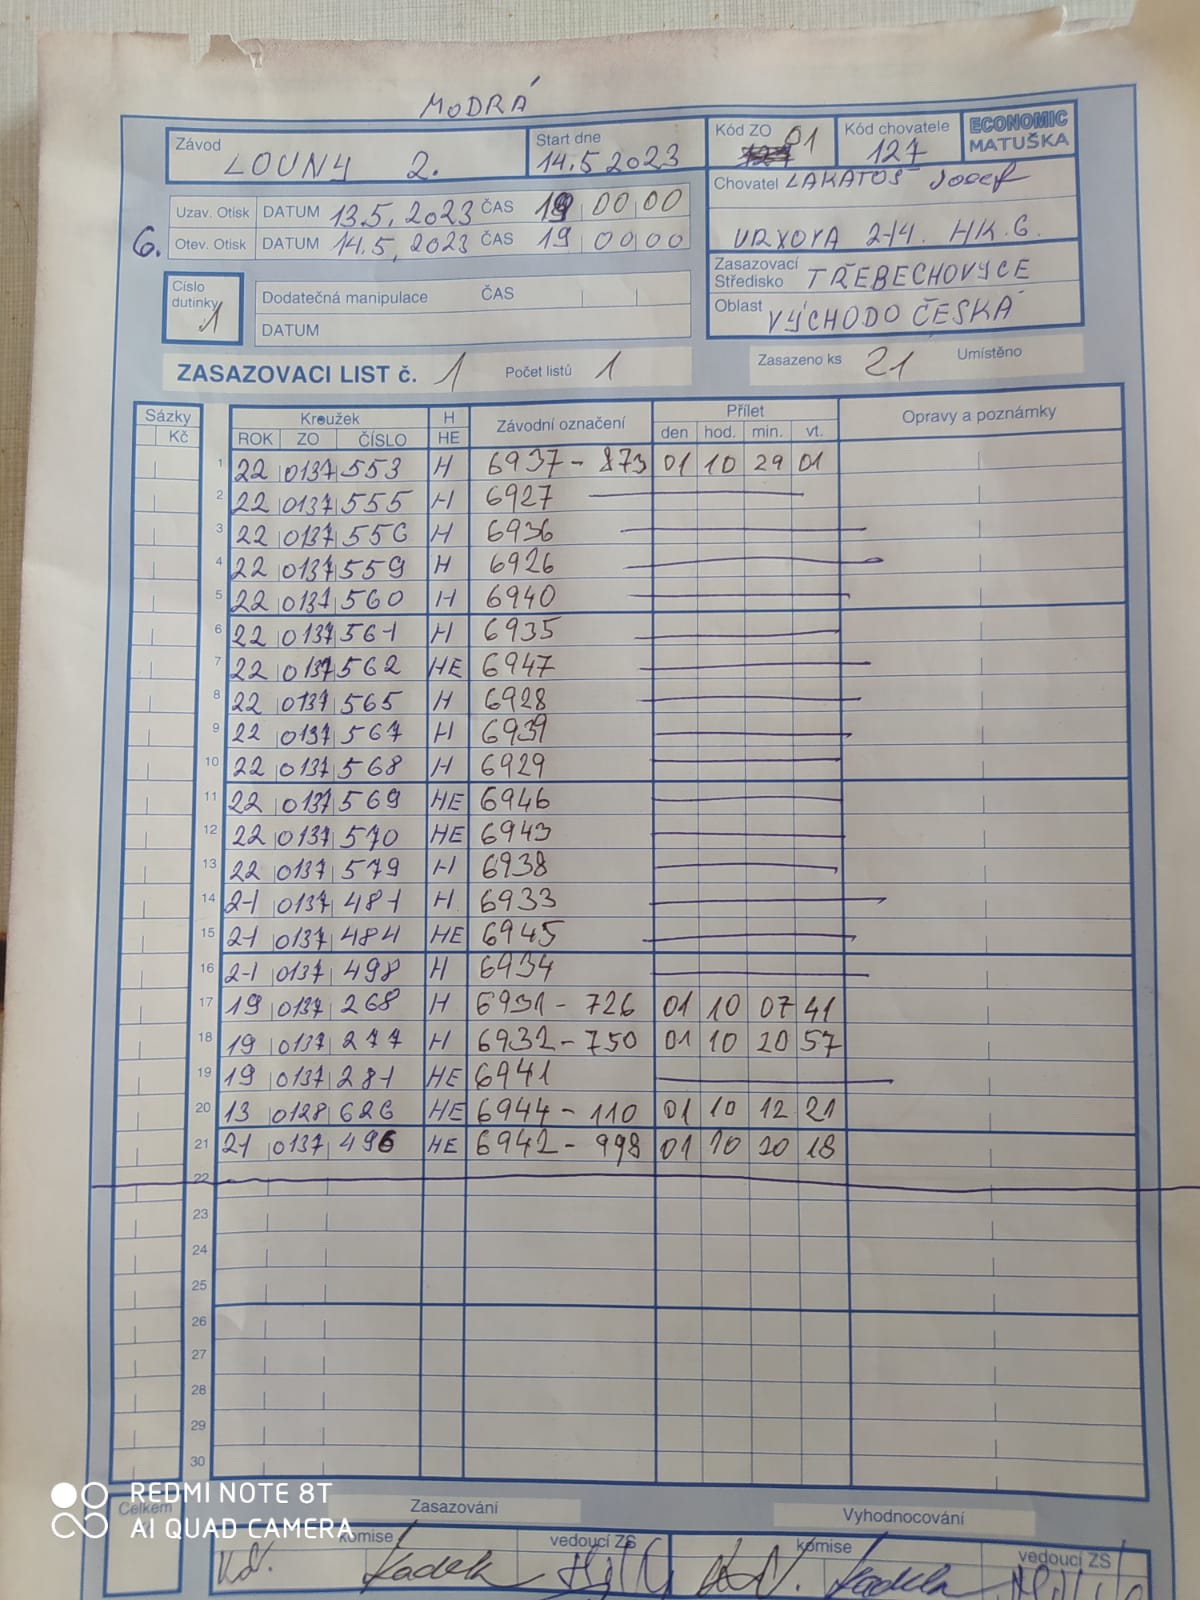 MODRÁ
Závod LOUNY 2. Start dne 14.5 2023 Kód ZO 01 Kód chovatele 127 ECONOMIC MATUŠKA
Chovatel LAKATOŠ Josef
Uzav. Otisk DATUM 13.5, 2023 ČAS 19 00 00
6. Otev. Otisk DATUM 14.5, 2023 ČAS 19 00 00
214. HK.6.
Zasazovací Středisko TŘEBECHOVYCE
Oblast VÝCHODO ČESKÁ
Číslo dutinky 1 Dodatečná manipulace ČAS
DATUM
ZASAZOVACI LIST č. 1 Počet listů 1 Zasazeno ks 21 Umístěno
Sázky Kroužek H Závodní označení Přílet Opravy a poznámky
Kč ROK ZO ČÍSLO HE den hod. min. vt.
1 22 0137 553 H 6937 - 873 01 10 29 01
2 22 0137 555 H 6927
3 22 0137 556 H 6936
4 22 0137 559 H 6926
5 22 0137 560 H 6940
6 22 0137 561 H 6935
7 22 0137 562 HE 6947
8 22 0137 565 H 6928
9 22 0137 567 H 6939
10 22 0137 568 H 6929
11 22 0137 569 HE 6946
12 22 0137 570 HE 6943
13 22 0137 579 H 6938
14 21 0137 481 H 6933
15 21 0137 484 HE 6945
16 21 0137 498 H 6934
17 19 0137 268 H 6931 - 726 01 10 07 41
18 19 0137 277 H 6932 - 750 01 10 20 57
19 19 0137 281 HE 6941
20 13 0128 626 HE 6944 - 110 01 10 12 21
21 21 0137 496 HE 6942 - 998 01 10 20 18
22
23
24
25
26
27
28
29
30
Celkem Zasazování Vyhodnocování
komise vedoucí ZS komise vedoucí ZS
REDMI NOTE 8T
AI QUAD CAMERA